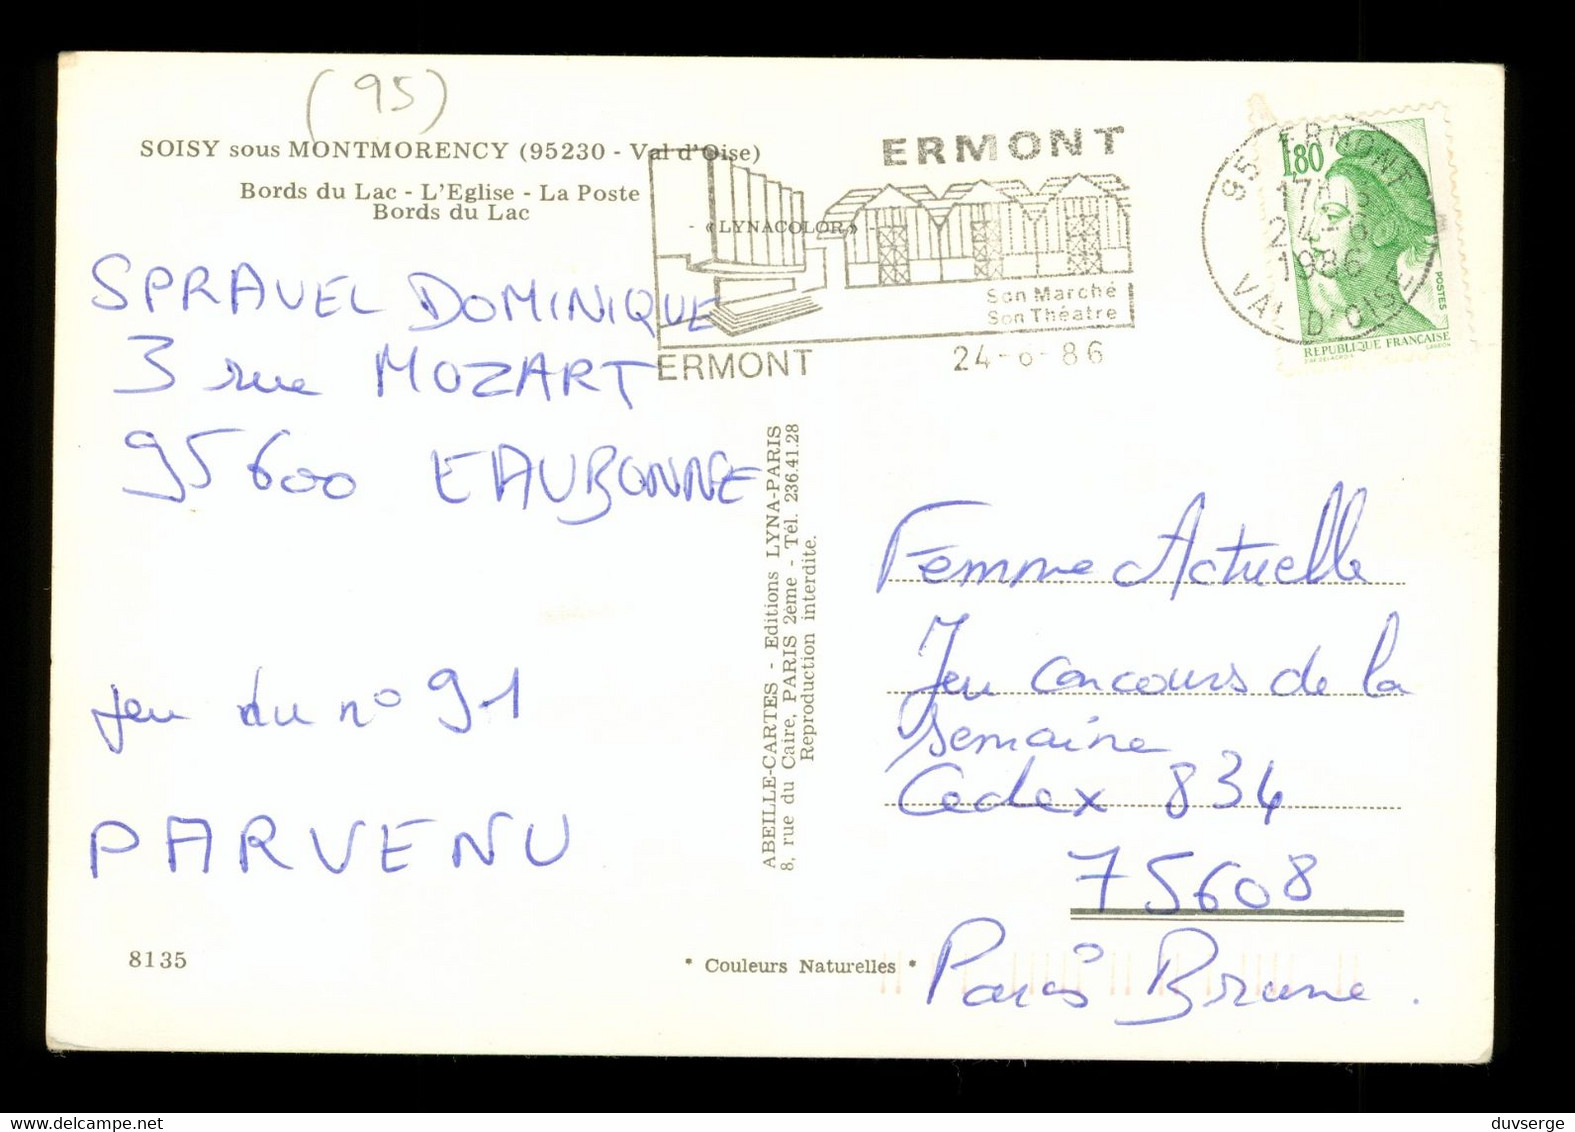 (95)
SOISY sous MONTMORENCY (95230 - Val d'Oise)
Bords du Lac - L'Eglise - La Poste
Bords du Lac
- « LYNACOLOR » -
ERMONT
Son Marché
Son Théatre
ERMONT 24-6-86
95 ERMONT
24-6
1986
VAL D'OISE
1,80
POSTES
REPUBLIQUE FRANCAISE
SPRAUEL DOMINIQUE
3 rue MOZART
95600 EAUBONNE
jeu du n° 91
PARVENU
ABEILLE-CARTES - Editions LYNA-PARIS
8, rue du Caire, PARIS 2ème - Tél. 236.41.28
Reproduction interdite.
Femme Actuelle
Jeu concours de la
semaine
Cedex 834
75608
Paris Brune.
8135
* Couleurs Naturelles *
duvserge